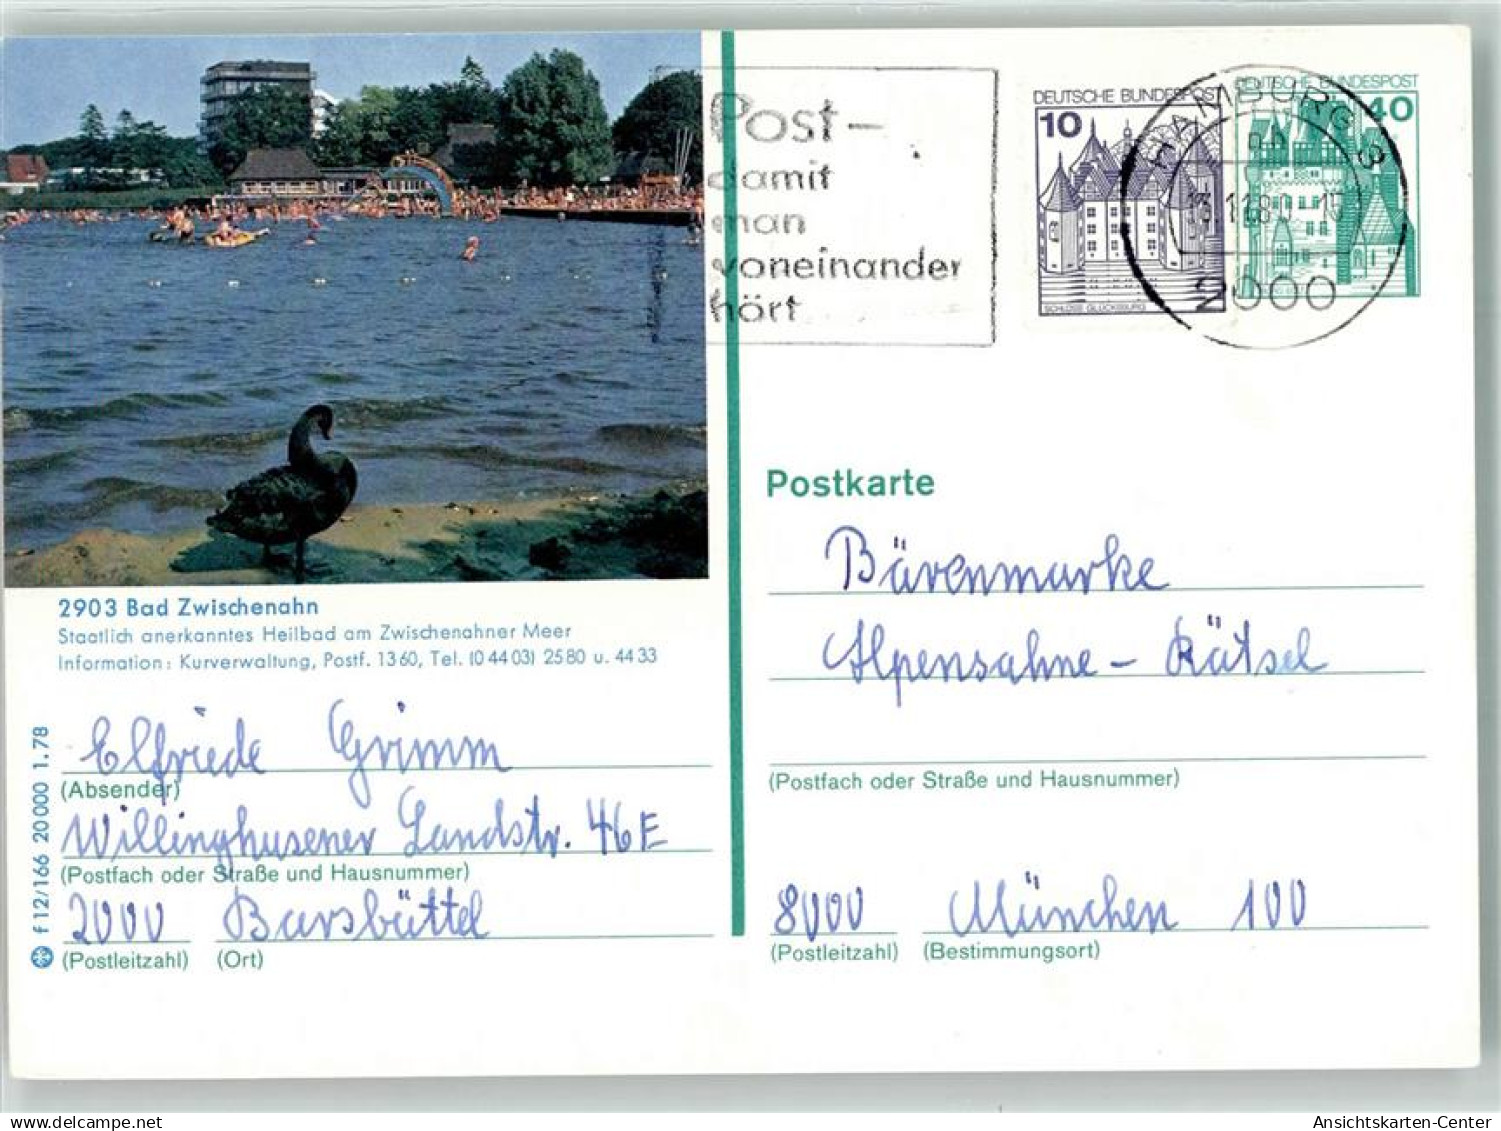 Post-
damit
man
voneinander
hört
DEUTSCHE BUNDESPOST
10
SCHLOSS GLÜCKSBURG
DEUTSCHE BUNDESPOST
40
HAMBURG
2000
2903 Bad Zwischenahn
Staatlich anerkanntes Heilbad am Zwischenahner Meer
Information: Kurverwaltung, Postf. 1360, Tel. (04403) 2580 u. 4433
f 12/166 20000 1.78
Elfriede Grimm
(Absender)
Willinghusener Landstr. 46E
(Postfach oder Straße und Hausnummer)
2000 Barsbüttel
(Postleitzahl) (Ort)
Postkarte
Bärenmarke
Alpensahne - Rätsel
(Postfach oder Straße und Hausnummer)
8000 München 100
(Postleitzahl) (Bestimmungsort)
Ansichtskarten-Center